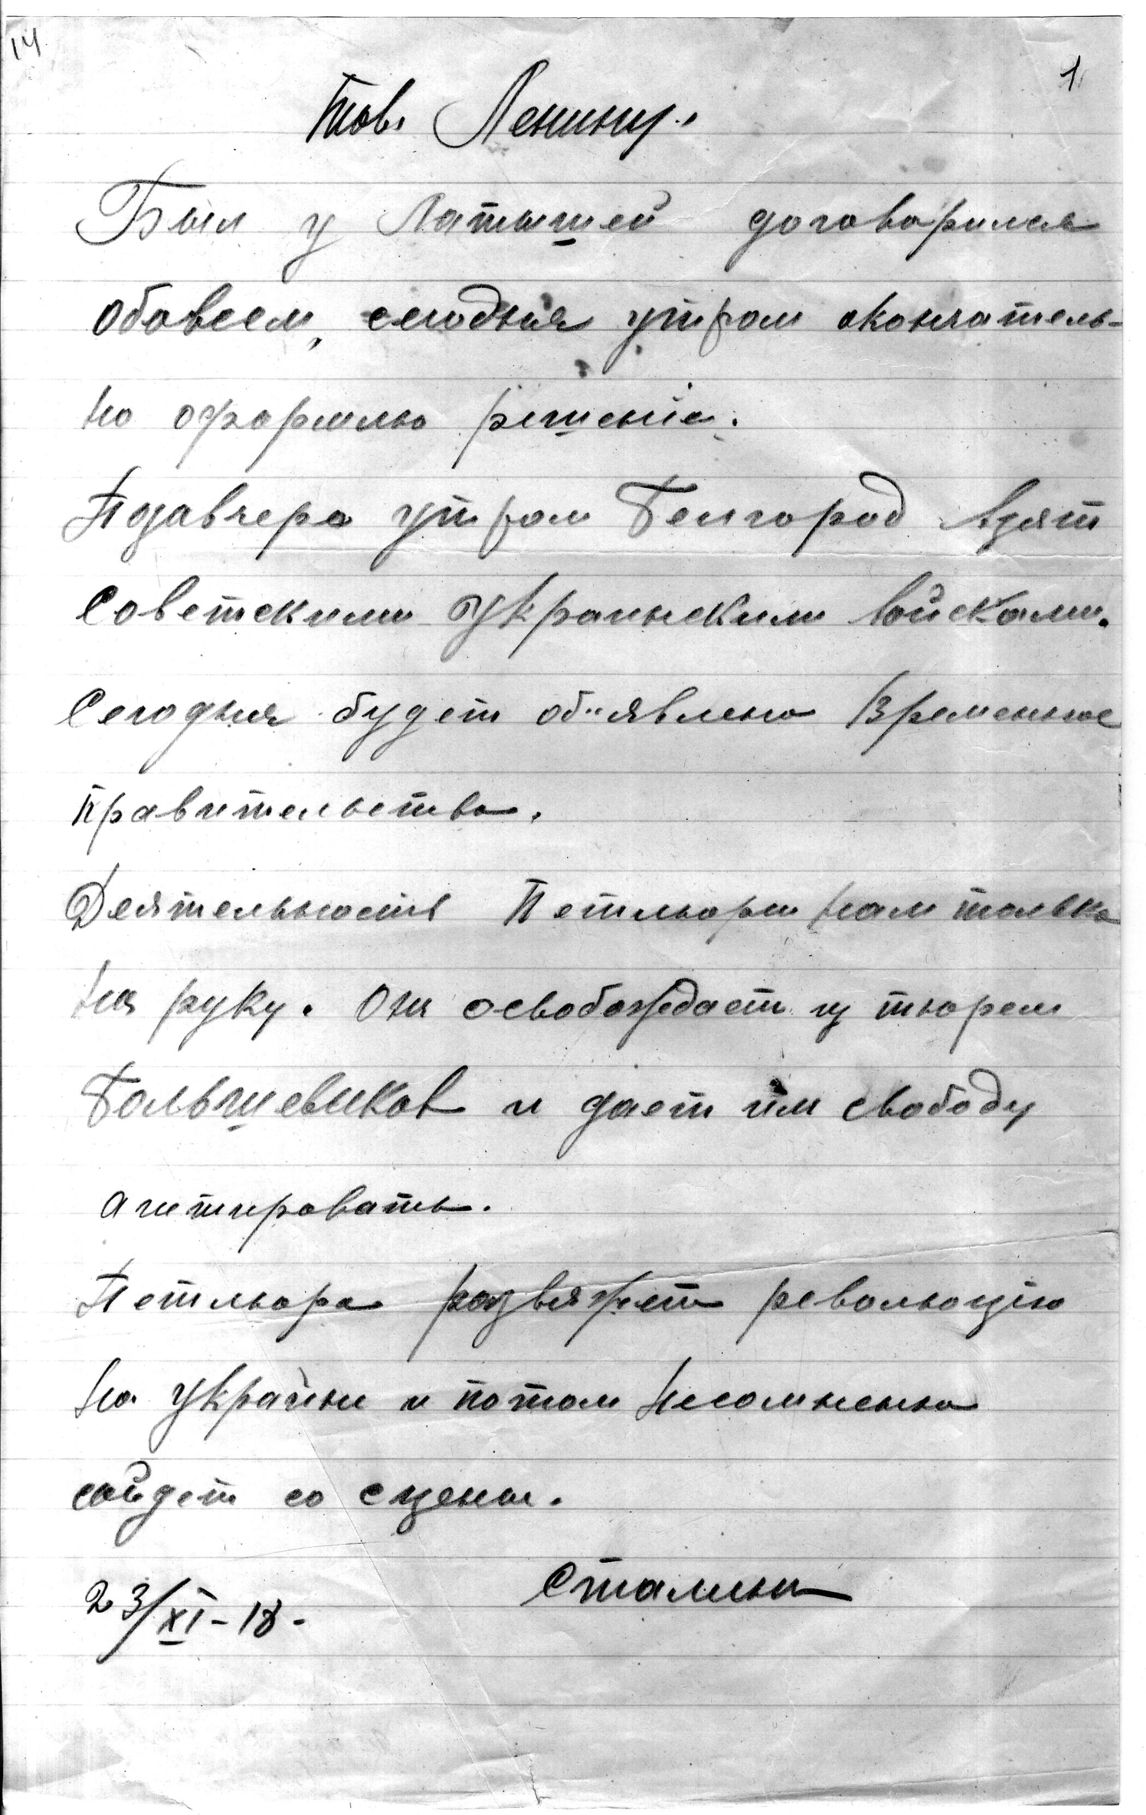 14
1
Тов. Ленину.
Был у Латышей договорился
обовсем, сегодня утром окончатель-
но оформлю решенiе.
Позавчера утром Белгород взят
Советскими Украинскими войсками.
Сегодня будет об"явлено Временное
правительство.
Деятельность Петлюры нам только
на руку. Он освобождает из тюрем
Большевиков и дает им свободу
агитировать.
Петлюра развяжет революцiю
на Украйне и потом несомненно
сойдет со сцены.
Сталин
23/XI-18-